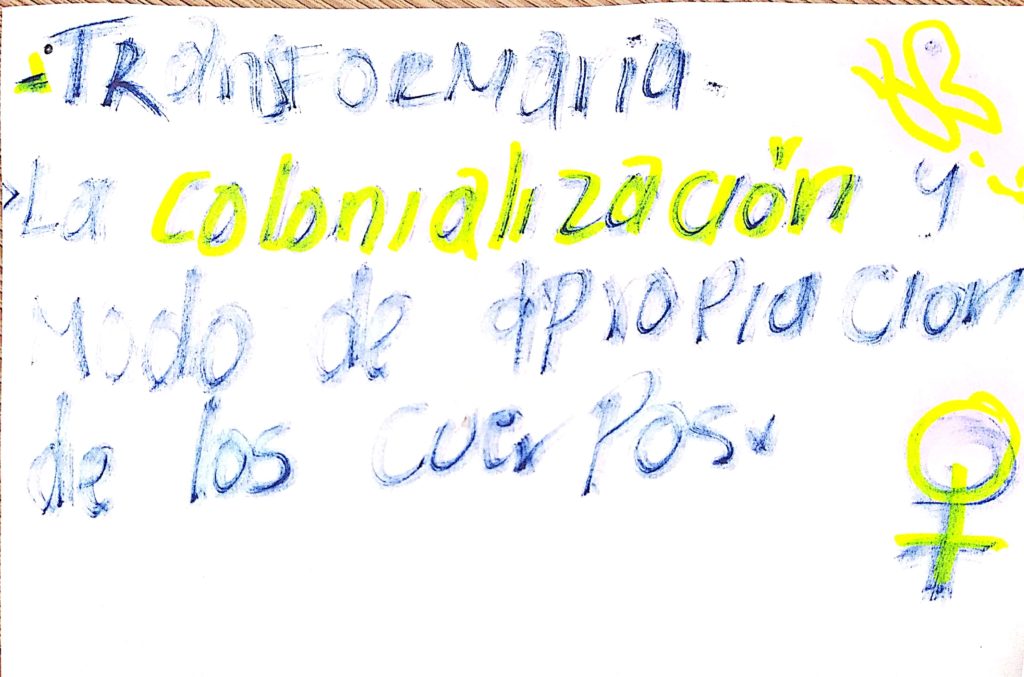 TRansFORMaría.
La colonialización y
Modo de apropiacion
de los cuerpos.